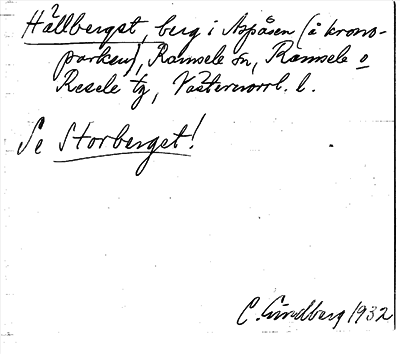 Hällberget, berg i Aspåsen (å krono-
parken), Ramsele sn, Ramsele o
Resele tg, Västernorrl. l.
Se Storberget!
C. Lindberg 1932